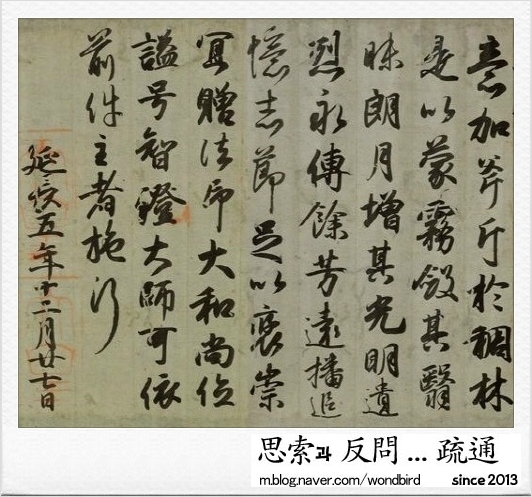 意加斧斤於稠林
是以蒙霧斂其翳
昧朗月增其光明遺
烈永傳餘芳遠播追
憶志節足以褒崇
宜贈法印大和尚位
諡号智證大師可依
前件主者施行
延長五年十二月廿七日
思索과 反問 ... 疏通
m.blog.naver.com/wondbird since 2013